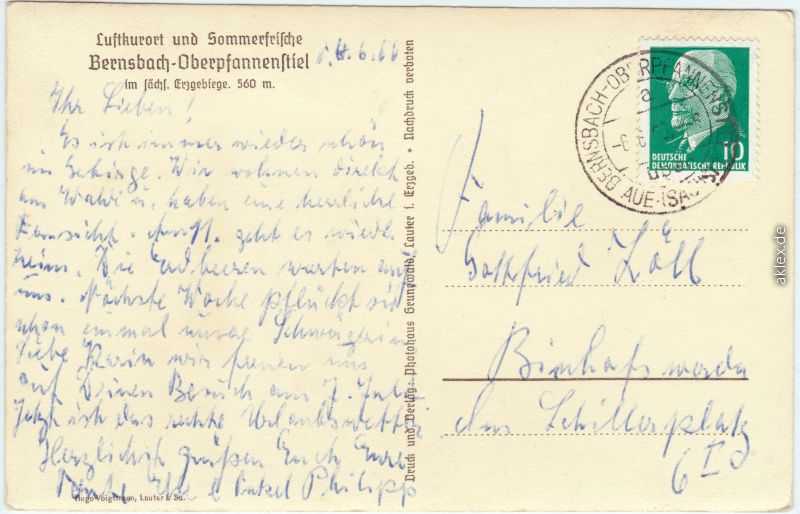 Luftkurort und Sommerfrische
Bernsbach-Oberpfannenstiel
im sächs. Erzgebirge. 560 m.
6.66
Ihr Lieben!
Es ist immer wieder schön
im Gebirge. Wir wohnen direkt
am Wald u. haben eine herrliche
Fernsicht. geht es wieder
heim. Die Erdbeeren warten auf
uns. Nächste Woche pflückt sie
schon einmal unsre Schwägerin
Liebe Karin wir freuen uns
auf Deinen Besuch am 7. Juli.
Jetzt ist das rechte Urlaubswetter
Herzlichst grüßen Euch Eure
Tante u. Onkel Philipp
Hugo Voigtmann, Lauter i. Sa.
Druck und Verlag: Photohaus Grunewald, Lauter i. Erzgeb. • Nachdruck verboten
BERNSBACH-OBERPFANNENSTIEL
a
ÜB. AUE (SACHS)
DEUTSCHE
DEMOKRATISCHE REPUBLIK
10
Familie
Gottfried
Bischofswerda
Am Schillerplatz
6
aklex.de